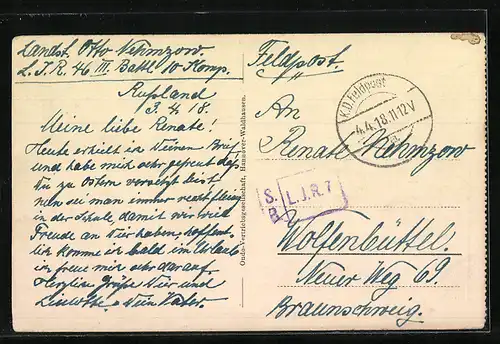 Landst. Otto Nehmzow.
L. I. R. 46 III. Battl. 10 Komp.
Rußland
3.4.18.
Meine liebe Renate!
Heute erhielt ich Deinen Brief
und habe mich sehr gefreut daß
Du zu Ostern versetzt bist
nun sei man immer recht fleißig
in der Schule, damit wir viel
Freude an Dir haben, hoffentl.
ich komme ich bald im Urlaub
ich freue mich sehr darauf.
Herzliche Grüße Dir und
Liselotte. Dein Vater.
Ondo-Vertriebsgesellschaft, Hannover-Waldhausen.
Feldpost.
K.D. Feldpost
4.4.18.11-12V
a
An
Renate Nehmzow
S.
B.
L.I.R.7
Wolfenbüttel.
Neuer Weg 69.
Braunschweig.